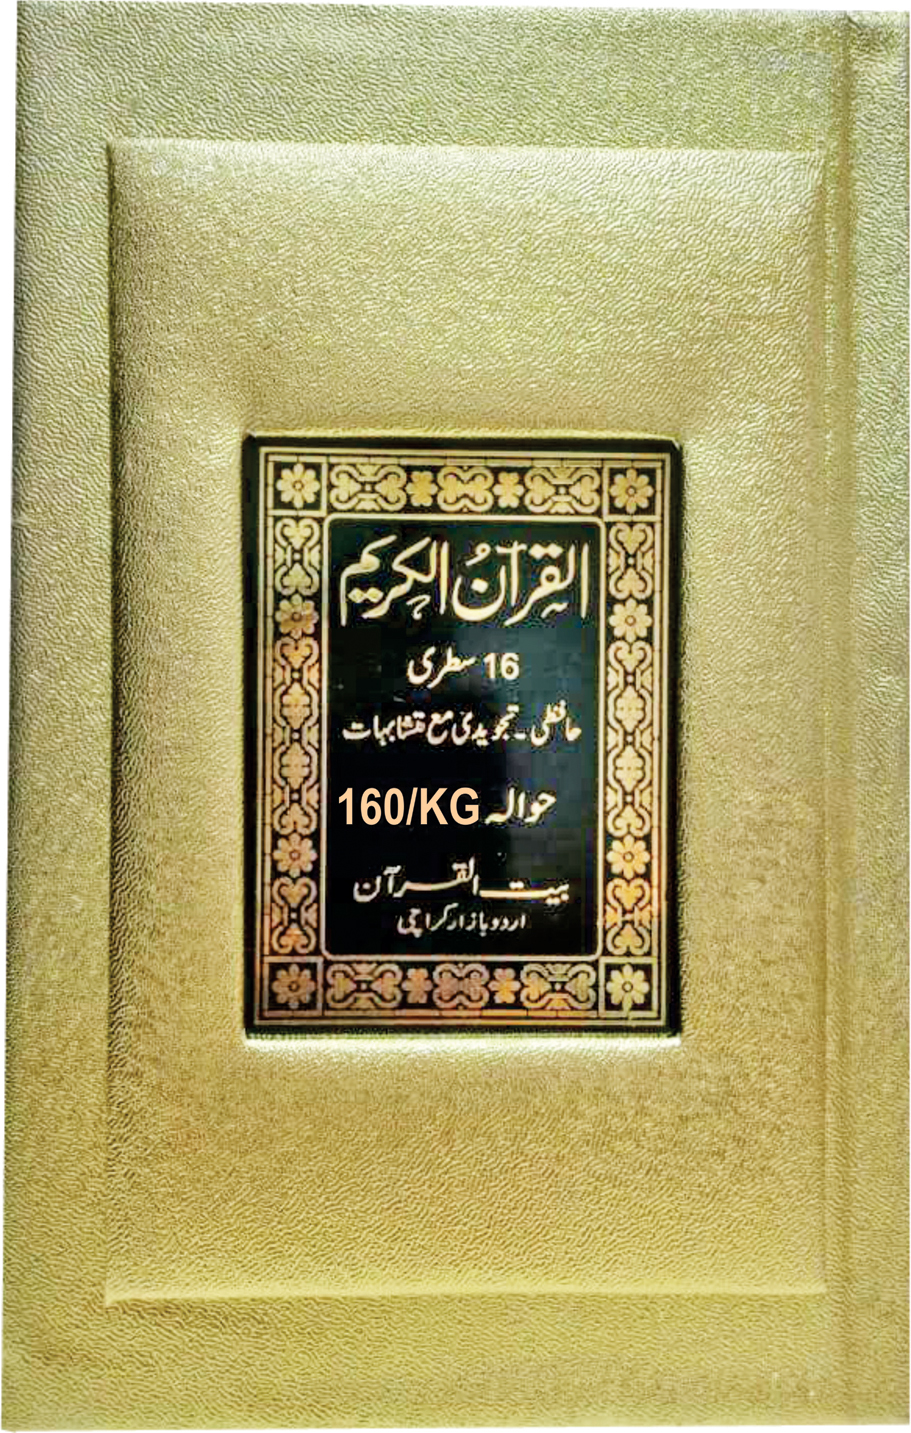 القرآنُ الكريم
16 سطری
حافظی ۔ تجویدی مع متشابہات
حوالہ 160/KG
بیت القرآن
اردو بازار کراچی